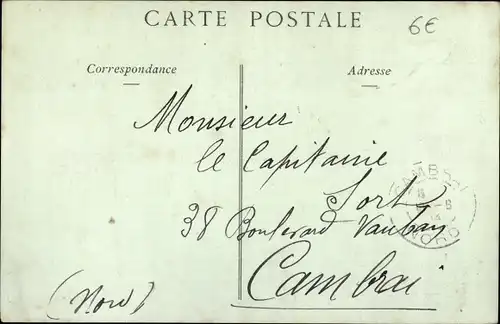 CARTE POSTALE
6€
Correspondance
Adresse
Monsieur
le Capitaine
Sort
38 Boulevard Vauban
Cambrai
(Nord)
CAMBRAI
NORD